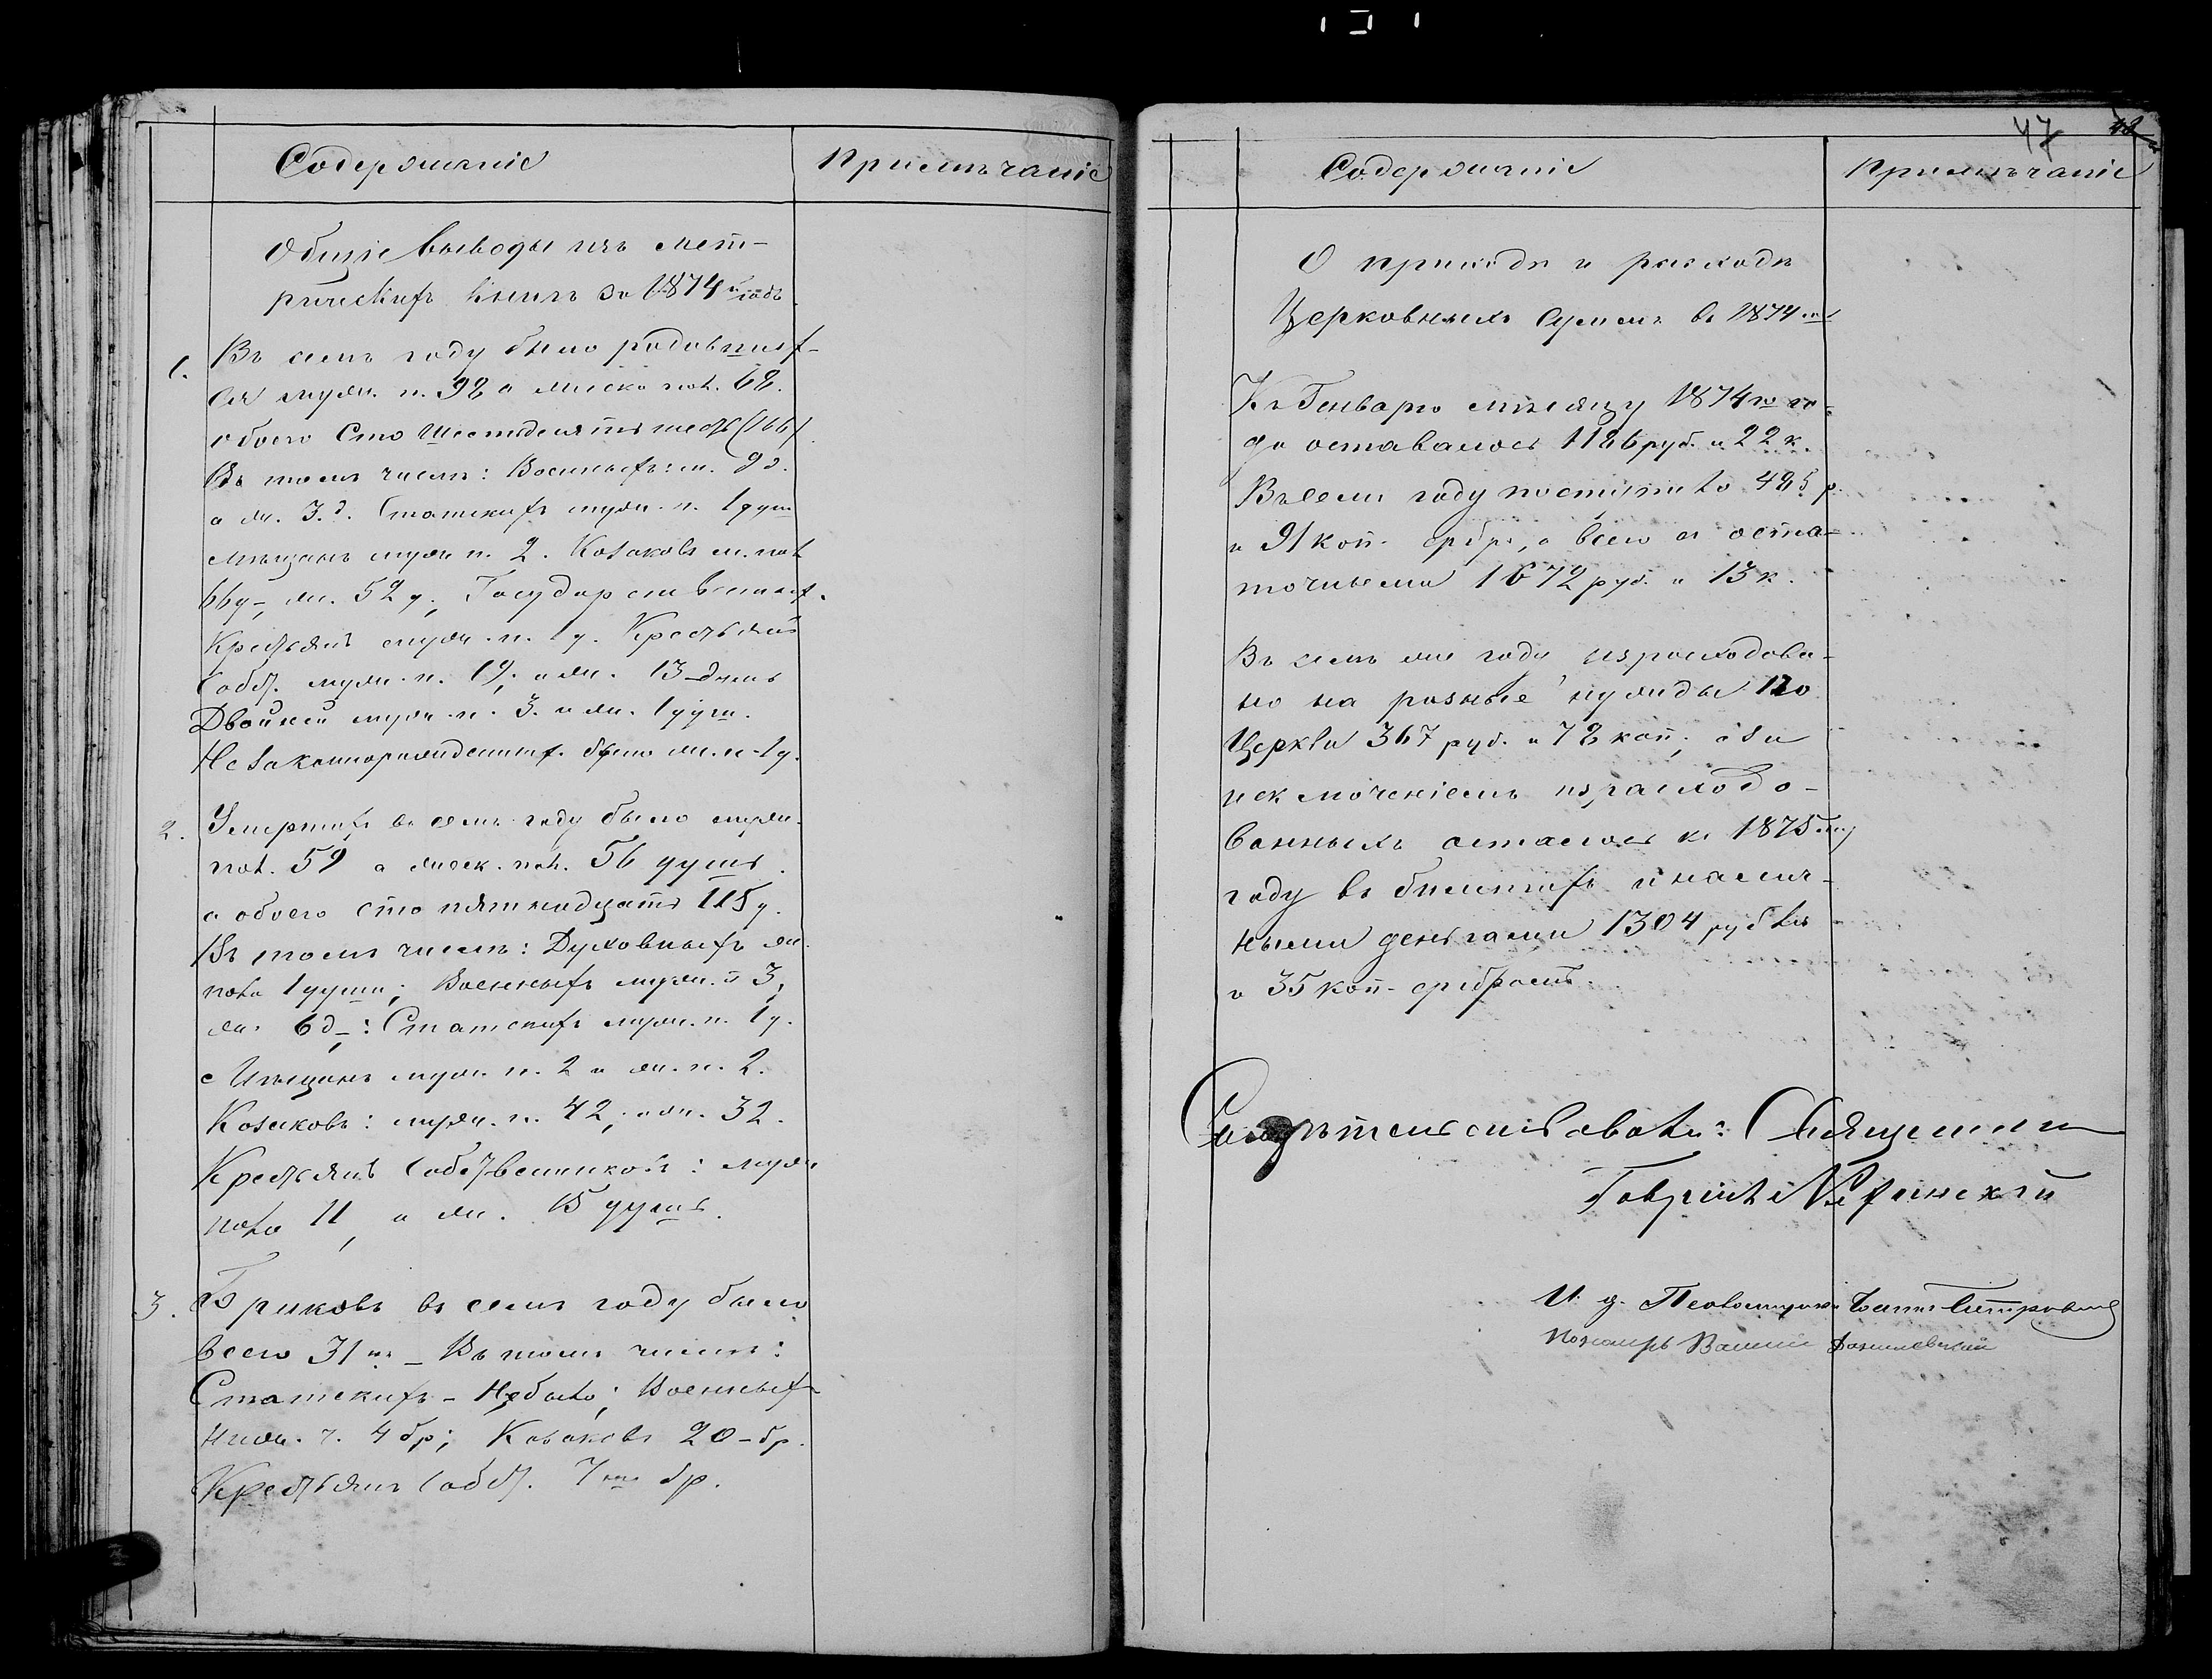 Содержаніе
Примѣчаніе
Общіе выводы изъ мет-
рическихъ книгъ за 1874й годъ
1. Въ семъ году было родовших-
ся муж. п. 98 а женска пол. 68.
обоего Сто шестьдесятъ шесть (166)
Въ томъ числѣ: Военныхъ: м. 9 д.
а ж. 3. д. Статскихъ муж. п. 1 душ
мѣщанъ муж п. 2. Козаковъ м. пол
66 д., ж. 52 д., Государственных.
Крестьянъ муж. п. 1 д. Крестьянъ
Собст. муж. п. 19, и ж. 13 душъ
Двойней муж. п. 3. и ж. 1 душ.
Незаконнорожденных. было ж. п. 1 д.
2. Умершихъ въ семъ году было муж.
пол. 59 а женск. пол. 56 душъ.
а обоего сто пятнадцать 115 д.
Въ томъ числѣ: Духовныхъ ж.
пола 1 души; Военныхъ муж. п 3,
ж. 6 д.: Статскихъ муж. п. 1 д.
Мѣщанъ муж. п. 2 и ж. п. 2.
Козаковъ: муж. п. 42, и ж. 32.
Крестьянъ Собственниковъ: муж
пола 11, и ж. 15 душъ.
3. Браковъ въ семъ году было
всего 31нъ – Въ томъ числѣ:
Статскихъ – Не было; Военных-
Нижн. ч. 4 бр; Козаковъ 20 – бр.
Крестьянъ Собст. 7мь бр.
47 48
Содержаніе
Примѣчаніе
О приходѣ и расходѣ
Церковныхъ суммъ въ 1874мъ
Къ Генварю мѣсяцу 1874го го-
да оставалось 1186 руб. и 22 к.
Въ семъ году поступило 485 р.
и 91 коп. сребр, а всего съ оста-
точными 1672 руб. и 13 к.
Въ семъ же году израсходова-
но на разные нужды по
Церкви 367 руб. и 78 коп, а за
исключеніемъ израсходо-
ванныхъ осталось къ 1875му
году въ билетахъ и налич-
ными деньгами 1304 рубля
и 35 коп. сребромъ.
Свидѣтельствовалъ: Священникъ
Гавріилъ
И. д. Псаломщика
Пономарь